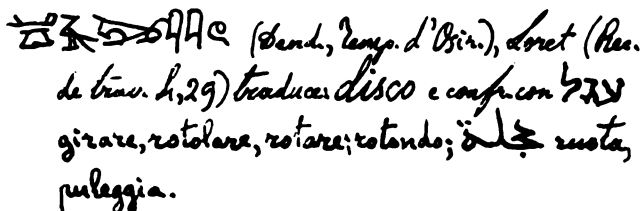 (Dend., Temp. d'Osir.), Loret (Rec.
de trav. 4, 29) traduce: disco e confr. con עגל
girare, rotolare, rotare; rotondo; عجلة ruota,
puleggia.